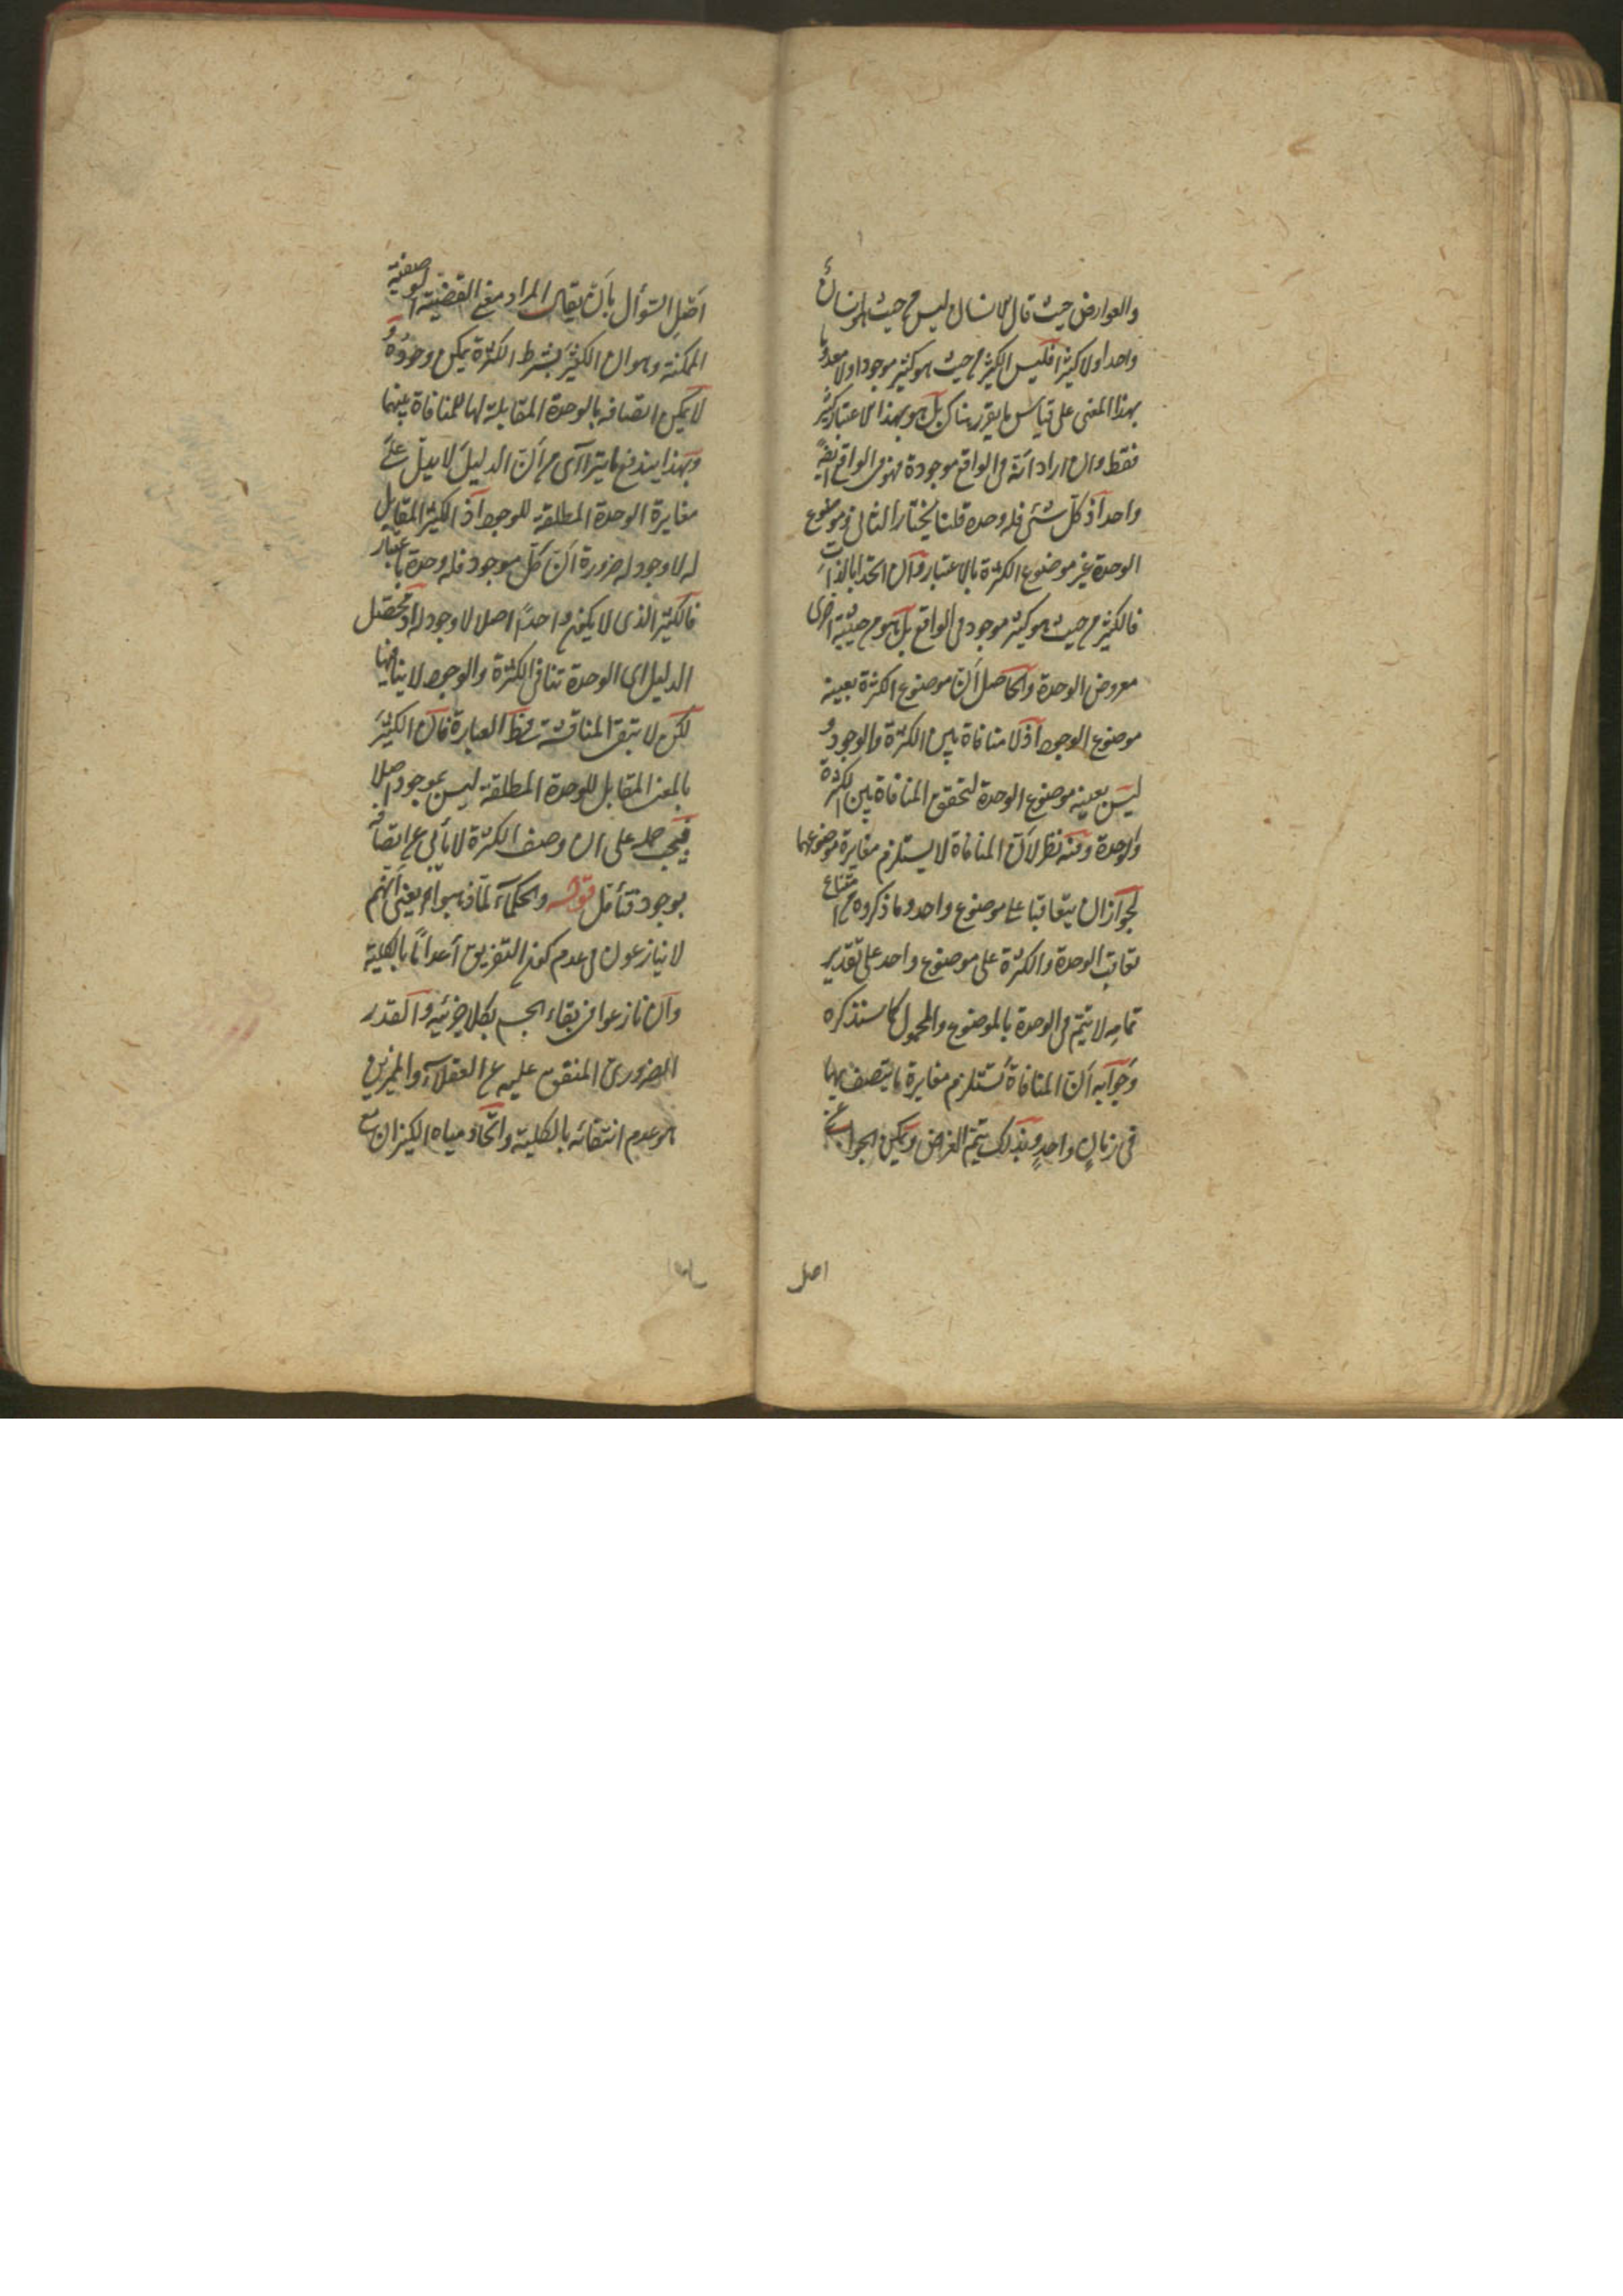 والعوارض حيث قال الانسان ليس من حيث هو انسان
واحدا ولا كثيرا فليس الكثير من حيث هو كثير موجودا ولا معدوما
بهذا المعنى على قياس ما يقرر هناك بل هو بهذا الاعتبار كثير
فقط وان اراد انه فى الواقع موجودة فهو فى الواقع ايضا
واحد اذ كل شئ فله وحدة قلنا يختار الثانى وموضوع
الوحدة غير موضوع الكثرة بالاعتبار وان اتحدا بالذات
فالكثير من حيث هو كثير موجود فى الواقع بل هو من حيثية اخرى
معروض الوحدة والحاصل ان موضوع الكثرة بعينه
موضوع الوجود اذ لا منافاة بين الكثرة والوجود و
ليس بعينه موضوع الوحدة لتحقق المنافاة بين الكثرة
والوحدة وفيه نظر لان المنافاة لا يستلزم مغايرة موضوعهما
لجواز ان يتعاقبا على موضوع واحد وما ذكروه من امتناع
تعاقب الوحدة والكثرة على موضوع واحد على تقدير
تمامه لا يتم فى الوحدة بالموضوع والمحمول كما سنذكره
وجوابه ان المنافاة تستلزم مغايرة ما يتصف بهما
فى زمان واحد وبذلك يتم الغرض ويمكن الجواب عن
اصل
اصل السؤال بان يقال المراد معنى القضية الوصفية
الممكنة وهو ان الكثير بشرط الكثرة يمكن وجوده و
لا يمكن اتصافه بالوحدة المقابلة لها للمنافاة بينهما
وبهذا يندفع ما يتراآى من ان الدليل لا يدل على
مغايرة الوحدة المطلقة للوجود اذ الكثير المقابل
له لا وجود له ضرورة ان كل موجود فله وحدة باعتبار
فالكثير الذى لا يكون واحدا اصلا لا وجود له اذ محصل
الدليل ان الوحدة تنافى الكثرة والوجود لا ينافيها
لكن لا تبقى المناقشة فى العبارة فان الكثير
بالمعنى المقابل للوحدة المطلقة ليس بموجود اصلا
فيجب حمله على ان وصف الكثرة لا يأبى عن اتصافه
بوجود فتأمل قوله والحكماء لما ذهبوا اه يعنى انهم
لا ينازعون فى عدم كون التفريق اعداما بالكلية
وان نازعوا فى بقاء الجسم بكلا جزئيه والقدر
الضرورى المتفق عليه عن العقلاء والمميزين
هو عدم انتفائه بالكلية واتحاد مياه الكيزان مع